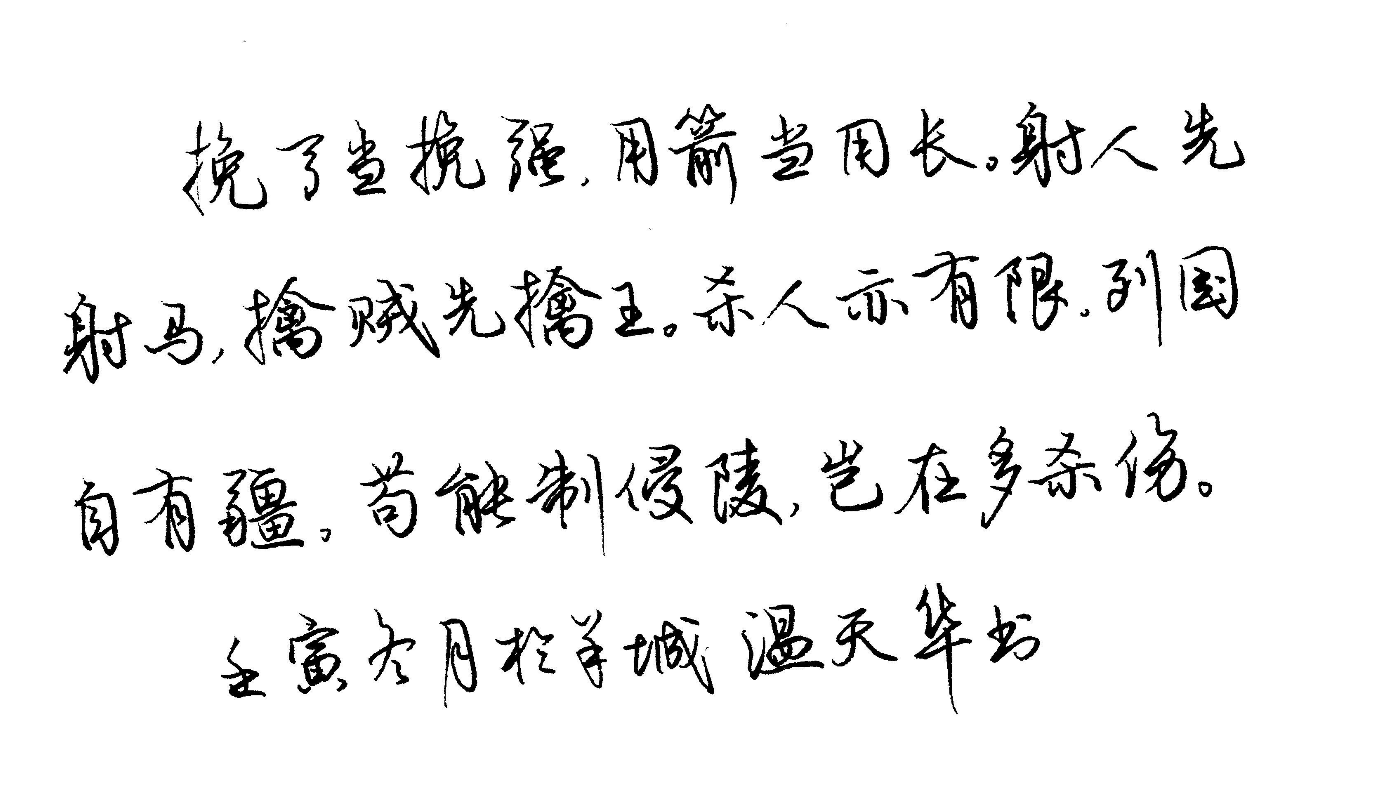 挽弓当挽强,用箭当用长。射人先
射马,擒贼先擒王。杀人亦有限,列国
自有疆。苟能制侵陵,岂在多杀伤。
壬寅冬月於羊城 温天华书